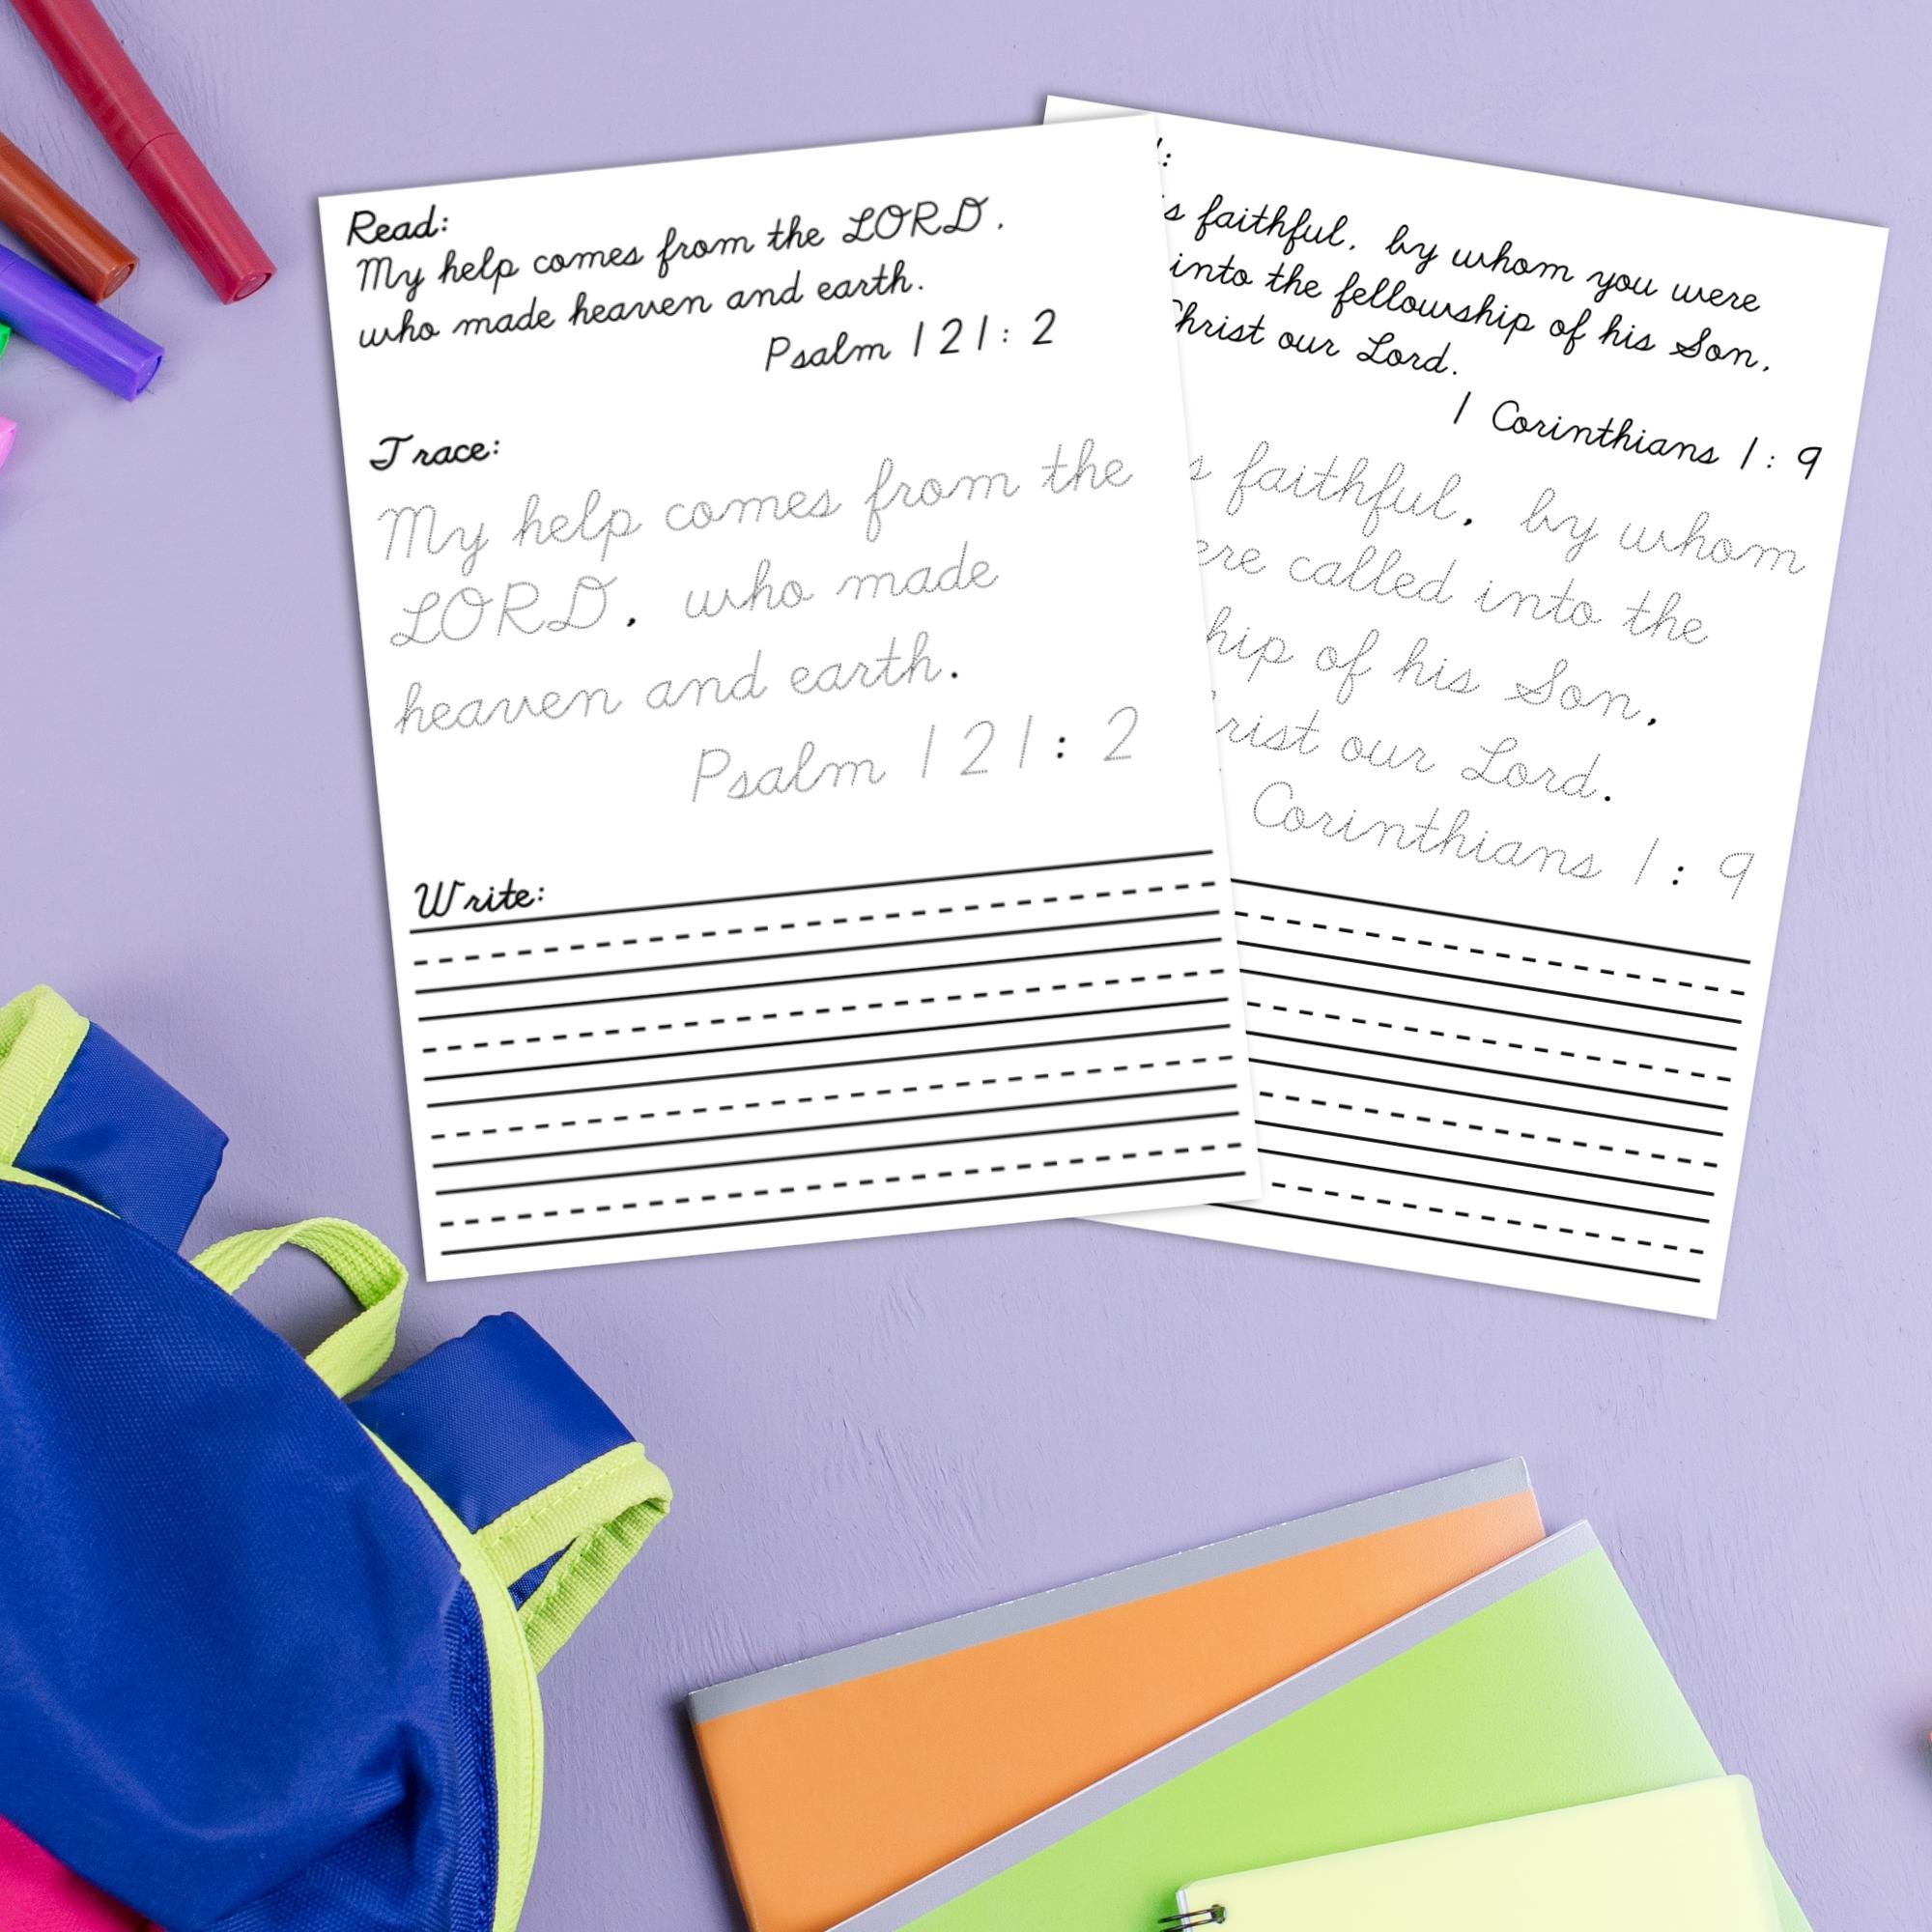 Read:
My help comes from the LORD,
who made heaven and earth.
Psalm 121: 2
Trace:
My help comes from the
LORD, who made
heaven and earth.
Psalm 121: 2
Write:
faithful, by whom you were
into the fellowship of his Son,
Christ our Lord.
1 Corinthians 1: 9
faithful, by whom
called into the
of his Son,
our Lord.
Corinthians 1: 9